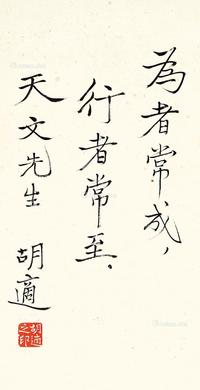 為者常成，
行者常至。
天文先生
胡適
胡適之印